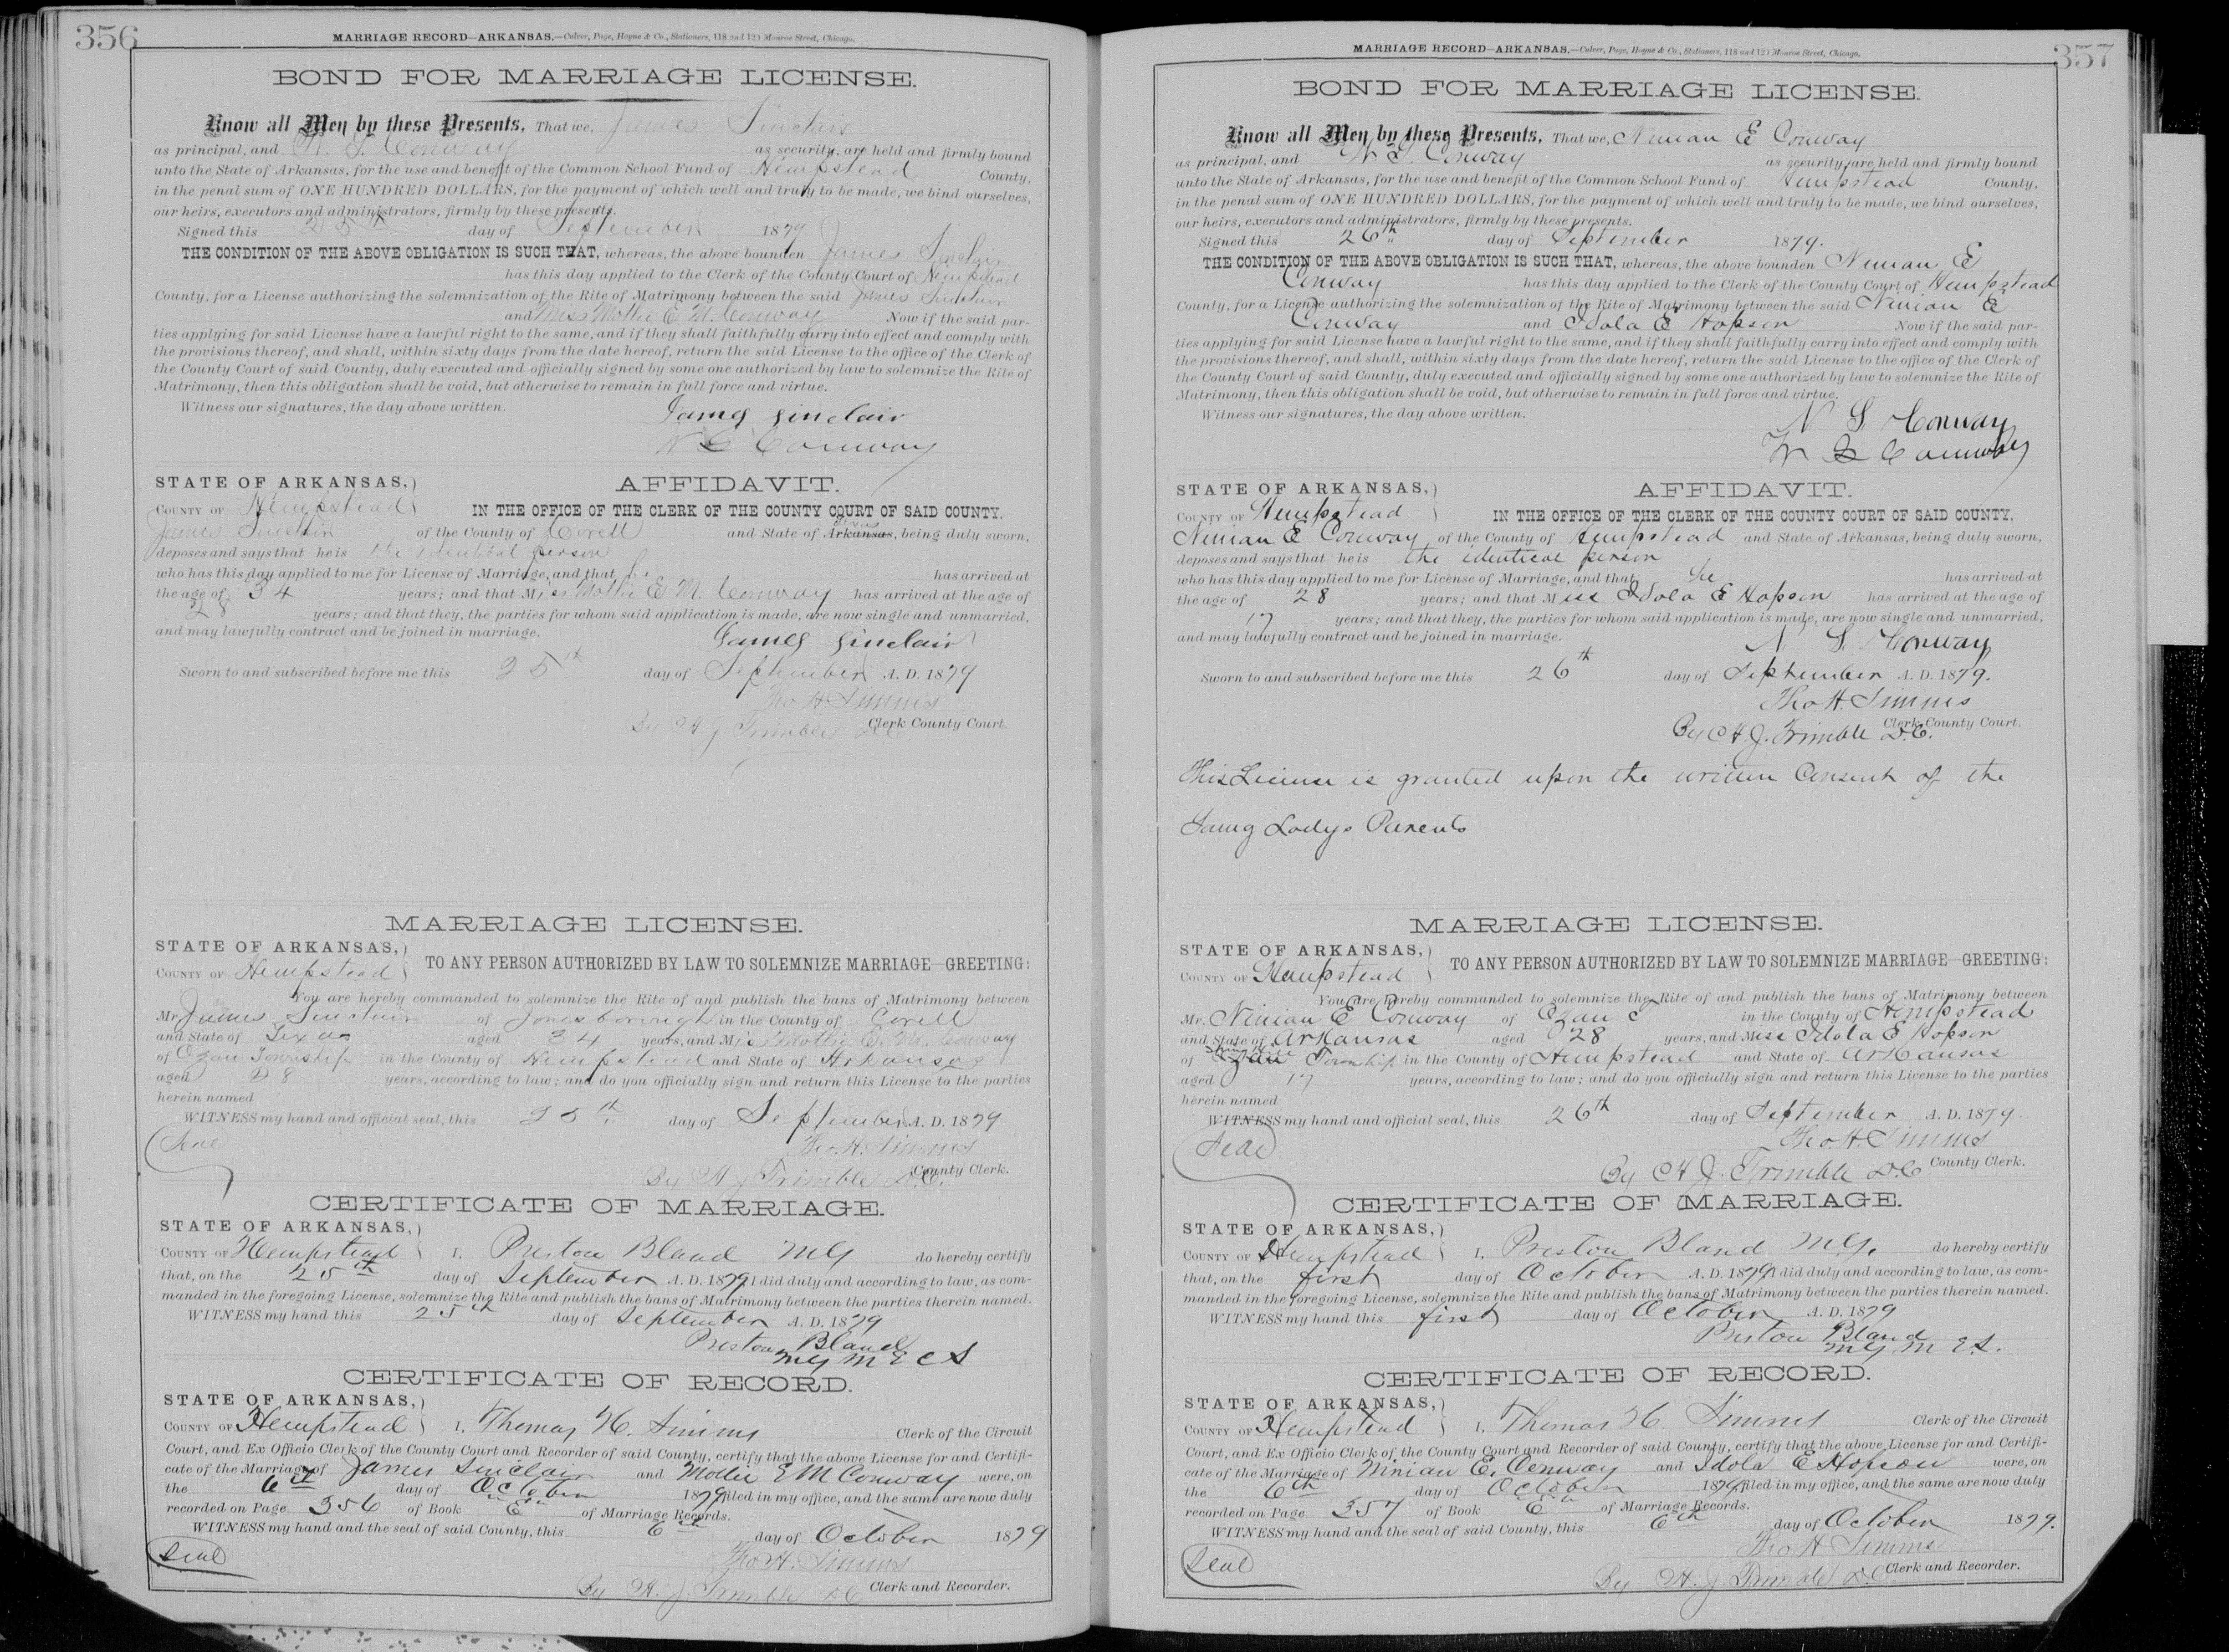 356
MARRIAGE RECORD—ARKANSAS.—Culver, Page, Hoyne & Co., Stationers, 118 and 120 Monroe Street, Chicago.
BOND FOR MARRIAGE LICENSE.
Know all Men by these Presents, That we, James Sinclair
as principal, and N. S. Conway as security, are held and firmly bound
unto the State of Arkansas, for the use and benefit of the Common School Fund of Hempstead County,
in the penal sum of ONE HUNDRED DOLLARS, for the payment of which well and truly to be made, we bind ourselves,
our heirs, executors and administrators, firmly by these presents.
Signed this 25th day of September 1879
THE CONDITION OF THE ABOVE OBLIGATION IS SUCH THAT, whereas, the above bounden James Sinclair
has this day applied to the Clerk of the County Court of Hempstead
County, for a License authorizing the solemnization of the Rite of Matrimony between the said James Sinclair
and Miss Mollie E. M. Conway Now if the said par-
ties applying for said License have a lawful right to the same, and if they shall faithfully carry into effect and comply with
the provisions thereof, and shall, within sixty days from the date hereof, return the said License to the office of the Clerk of
the County Court of said County, duly executed and officially signed by some one authorized by law to solemnize the Rite of
Matrimony, then this obligation shall be void, but otherwise to remain in full force and virtue.
Witness our signatures, the day above written.
James Sinclair
Conway
STATE OF ARKANSAS,
AFFIDAVIT.
COUNTY OF Hempstead
IN THE OFFICE OF THE CLERK OF THE COUNTY COURT OF SAID COUNTY.
James Sinclair of the County of Corell and State of Arkansas Texas, being duly sworn,
deposes and says that he is the identical person
who has this day applied to me for License of Marriage, and that he has arrived at
the age of 34 years; and that Miss Mollie E. M. Conway has arrived at the age of
28 years; and that they, the parties for whom said application is made, are now single and unmarried,
and may lawfully contract and be joined in marriage.
James Sinclair
Sworn to and subscribed before me this 25th day of September A. D. 1879
Tho H. Simms
Clerk County Court.
By H J Trimble D.C.
MARRIAGE LICENSE.
STATE OF ARKANSAS,
COUNTY OF Hempstead
TO ANY PERSON AUTHORIZED BY LAW TO SOLEMNIZE MARRIAGE—GREETING:
You are hereby commanded to solemnize the Rite of and publish the bans of Matrimony between
Mr James Sinclair of Jonesborough in the County of Corell
and State of Texas aged 34 years, and Miss Mollie E. M. Conway
of Ozan Township in the County of Hempstead and State of Arkansas
aged 28 years, according to law; and do you officially sign and return this License to the parties
herein named
WITNESS my hand and official seal, this 25th day of September A. D. 1879
Seal
Tho. H. Simms
County Clerk.
By H J Trimble D.C.
CERTIFICATE OF MARRIAGE.
STATE OF ARKANSAS,
COUNTY OF Hempstead I, Preston Bland MG do hereby certify
that, on the 25th day of September A. D. 1879 I did duly and according to law, as com-
manded in the foregoing License, solemnize the Rite and publish the bans of Matrimony between the parties therein named.
WITNESS my hand this 25th day of September A. D. 1879
Preston Bland
MG M E C S
CERTIFICATE OF RECORD.
STATE OF ARKANSAS,
COUNTY OF Hempstead I, Thomas H. Simms Clerk of the Circuit
Court, and Ex Officio Clerk of the County Court and Recorder of said County, certify that the above License for and Certifi-
cate of the Marriage of James Sinclair and Mollie E M Conway were, on
the 6th day of October 1879 filed in my office, and the same are now duly
recorded on Page 356 of Book "E" of Marriage Records.
WITNESS my hand and the seal of said County, this 6th day of October 1879
Seal
Tho H. Simms
Clerk and Recorder.
By H. J. Trimble DC
357
MARRIAGE RECORD—ARKANSAS.—Culver, Page, Hoyne & Co., Stationers, 118 and 120 Monroe Street, Chicago.
BOND FOR MARRIAGE LICENSE.
Know all Men by these Presents, That we, Ninian E Conway
as principal, and N S. Conway as security, are held and firmly bound
unto the State of Arkansas, for the use and benefit of the Common School Fund of Hempstead County,
in the penal sum of ONE HUNDRED DOLLARS, for the payment of which well and truly to be made, we bind ourselves,
our heirs, executors and administrators, firmly by these presents.
Signed this 26th day of September 1879.
THE CONDITION OF THE ABOVE OBLIGATION IS SUCH THAT, whereas, the above bounden Ninian E
Conway has this day applied to the Clerk of the County Court of Hempstead
County, for a License authorizing the solemnization of the Rite of Matrimony between the said Ninian E
Conway and Idola E Hopson Now if the said par-
ties applying for said License have a lawful right to the same, and if they shall faithfully carry into effect and comply with
the provisions thereof, and shall, within sixty days from the date hereof, return the said License to the office of the Clerk of
the County Court of said County, duly executed and officially signed by some one authorized by law to solemnize the Rite of
Matrimony, then this obligation shall be void, but otherwise to remain in full force and virtue.
Witness our signatures, the day above written.
N S. Conway
Conway
STATE OF ARKANSAS,
AFFIDAVIT.
COUNTY OF Hempstead
IN THE OFFICE OF THE CLERK OF THE COUNTY COURT OF SAID COUNTY.
Ninian E Conway of the County of Hempstead and State of Arkansas, being duly sworn,
deposes and says that he is the identical person
who has this day applied to me for License of Marriage, and that he has arrived at
the age of 28 years; and that Miss Idola E Hopson has arrived at the age of
17 years; and that they, the parties for whom said application is made, are now single and unmarried,
and may lawfully contract and be joined in marriage.
N S. Conway
Sworn to and subscribed before me this 26th day of September A. D. 1879.
Tho H. Simms
Clerk County Court.
By H. J. Trimble D.C.
This License is granted upon the written Consent of the
Young Ladys Parents
MARRIAGE LICENSE.
STATE OF ARKANSAS,
COUNTY OF Hempstead
TO ANY PERSON AUTHORIZED BY LAW TO SOLEMNIZE MARRIAGE—GREETING:
You are hereby commanded to solemnize the Rite of and publish the bans of Matrimony between
Mr. Ninian E Conway of Ozan in the County of Hempstead
and State of Arkansas aged 28 years, and Miss Idola E Hopson
of Ozan Township in the County of Hempstead and State of Arkansas
aged 17 years, according to law; and do you officially sign and return this License to the parties
herein named
WITNESS my hand and official seal, this 26th day of September A. D. 1879.
Seal
Tho H. Simms
County Clerk.
By H J. Trimble D.C
CERTIFICATE OF MARRIAGE.
STATE OF ARKANSAS,
COUNTY OF Hempstead I, Preston Bland M.G. do hereby certify
that, on the first day of October A. D. 1879 I did duly and according to law, as com-
manded in the foregoing License, solemnize the Rite and publish the bans of Matrimony between the parties therein named.
WITNESS my hand this first day of October A. D. 1879
Preston Bland
MG M E S.
CERTIFICATE OF RECORD.
STATE OF ARKANSAS,
COUNTY OF Hempstead I, Thomas H. Simms Clerk of the Circuit
Court, and Ex Officio Clerk of the County Court and Recorder of said County, certify that the above License for and Certifi-
cate of the Marriage of Ninian E. Conway and Idola E Hopson were, on
the 6th day of October 1879 filed in my office, and the same are now duly
recorded on Page 357 of Book "E" of Marriage Records.
WITNESS my hand and the seal of said County, this 6th day of October 1879.
Seal
Tho H Simms
Clerk and Recorder.
By H. J Trimble D.C